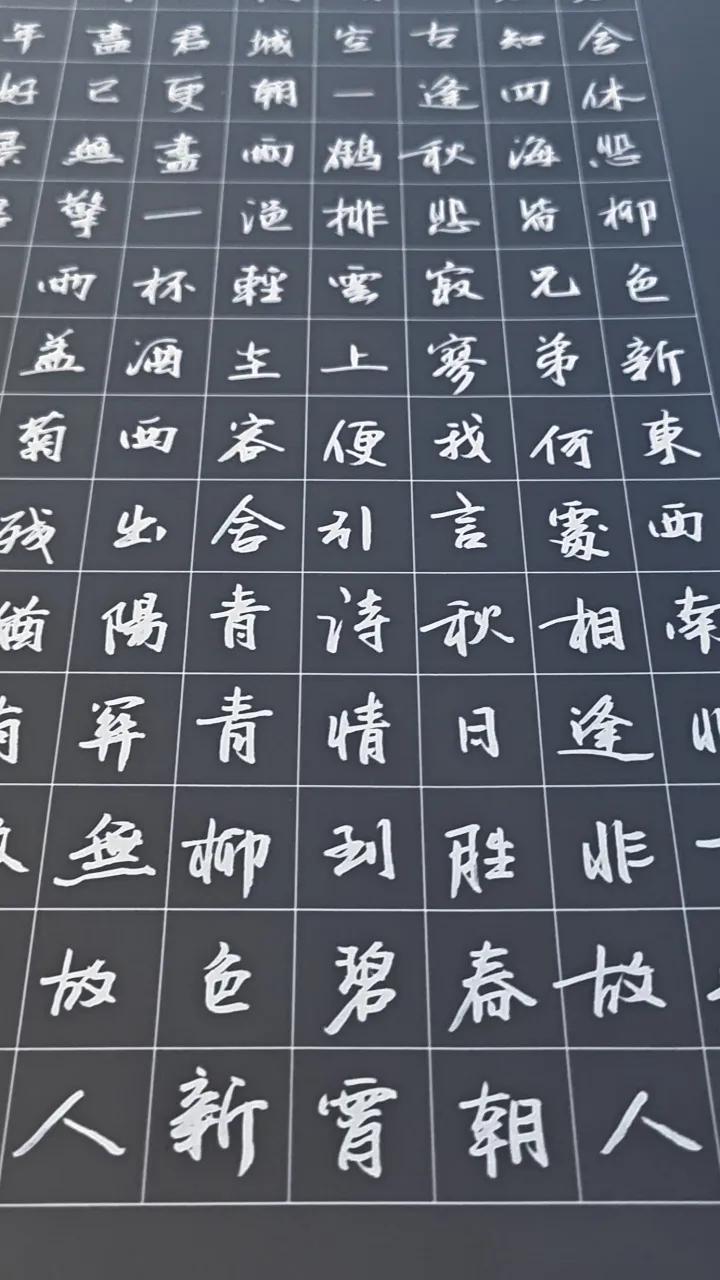 舍休悲柳色新東西南北一
知四海皆兄弟何處相逢非故人
古逢秋悲寂寥我言秋日胜春朝
空一鶴排雲上便引詩情到碧霄
城朝雨浥輕塵客舍青青柳色新
君更盡一杯酒西出陽關無故人
盡已無擎雨蓋菊残猶有
年好景君